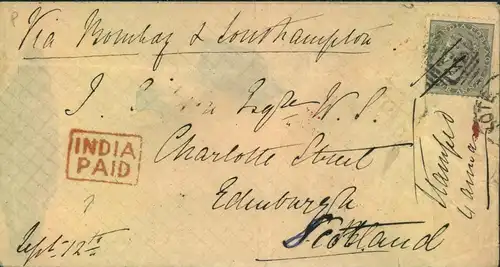 Via Bombay & Southampton
J. Esqre W. S.
Charlotte Street
Edenburgh
Scotland
INDIA
PAID
Sept. 12th
Stamped